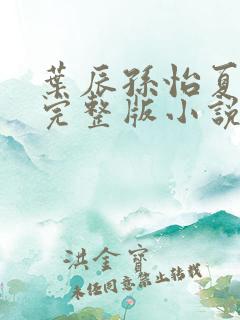 葉辰孫怡夏
完整版小說
洪金寶
未經同意禁止轉載